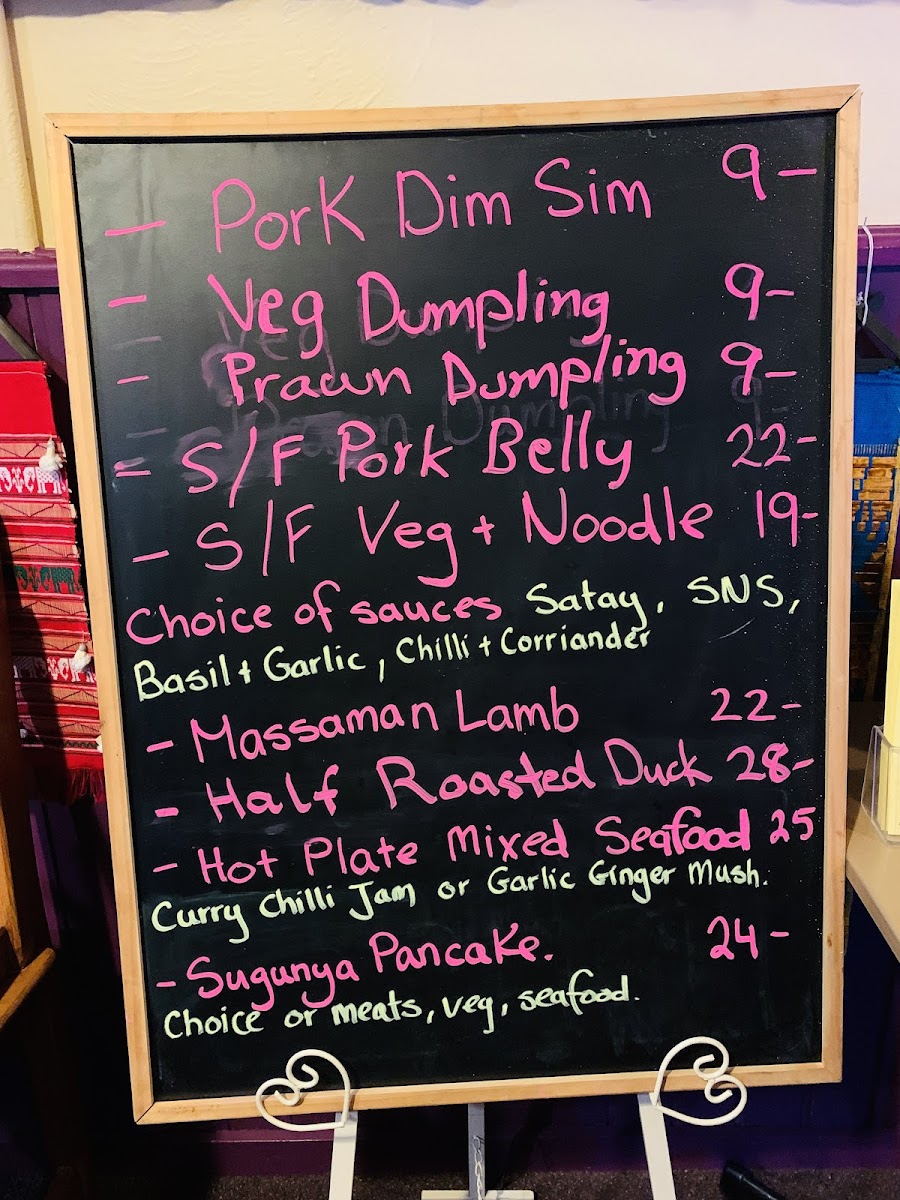 - Pork Dim Sim 9-
- Veg Dumpling 9-
- Prawn Dumpling 9-
- S/F Pork Belly 22-
- S/F Veg + Noodle 19-
Choice of sauces Satay, SNS,
Basil + Garlic, Chilli + Corriander
- Massaman Lamb 22-
- Half Roasted Duck 28-
- Hot Plate Mixed Seafood 25
Curry Chilli Jam or Garlic Ginger Mush.
- Sugunya Pancake. 24-
Choice or meats, veg, seafood.